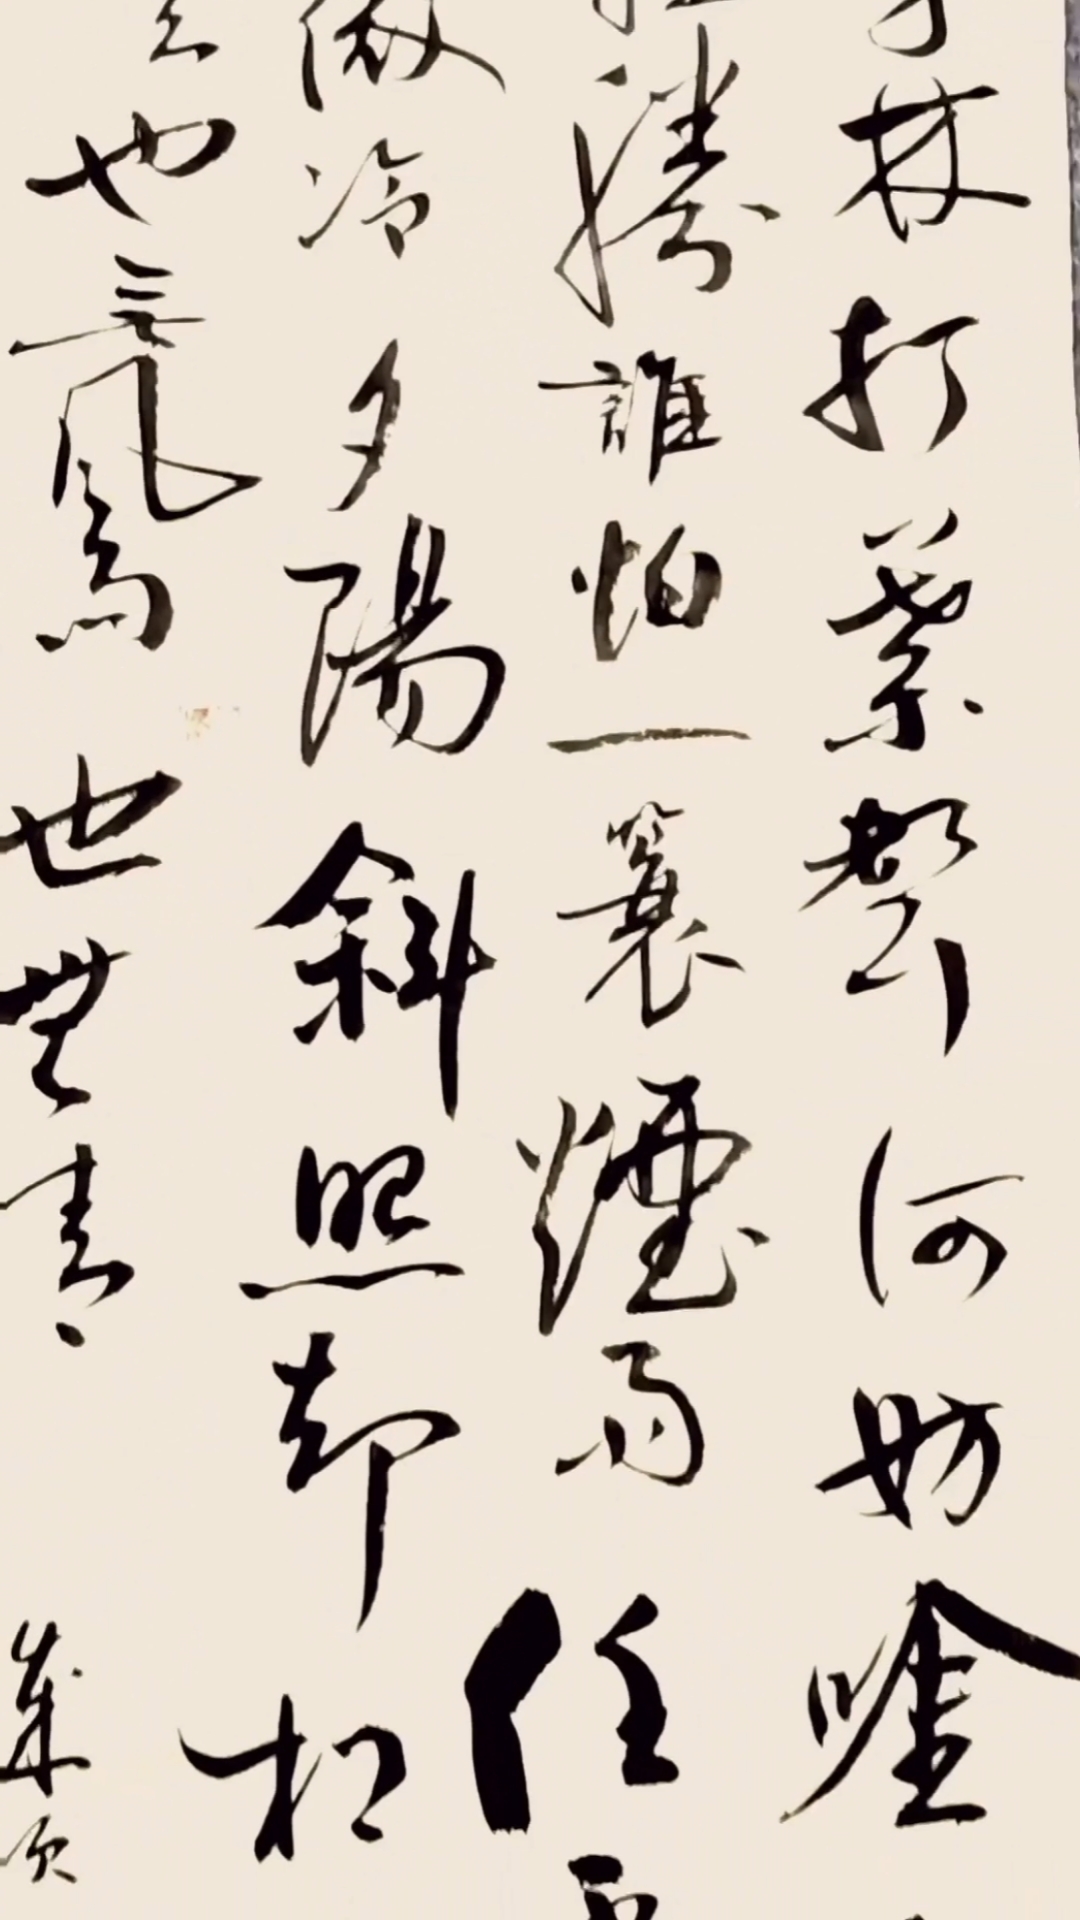 林打葉聲何妨唫
勝誰怕一蓑煙雨任平
微冷夕陽斜照却相
也無風雨也無晴
歲次